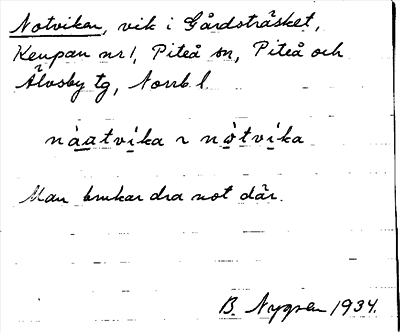 Notviken, vik i Gårdsträsket,
Keupan nr 1, Piteå sn, Piteå och
Älvsby tg, Norrb. l.
nàatvíka ~ nòtvíka
Man brukar dra not där.
B. Nygren 1934.